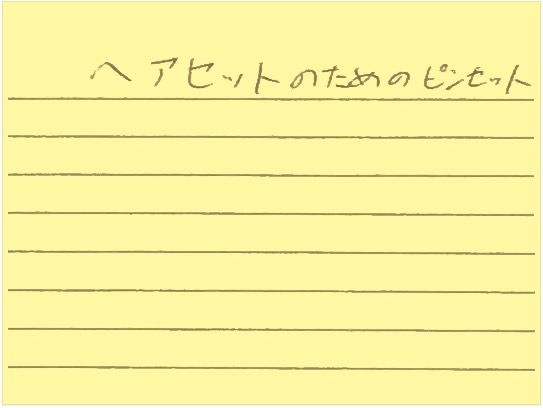 ヘアセットのためのピンセット